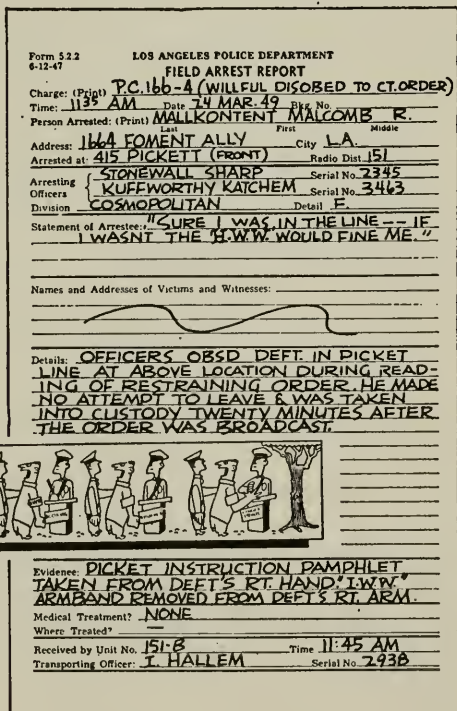 Form 5.2.2 LOS ANGELES POLICE DEPARTMENT
6-12-47 FIELD ARREST REPORT
Charge: (Print) P.C.166-4 (WILLFUL DISOBED TO CT.ORDER)
Time: 1135 AM Date 24 MAR. 49 Bkg. No.
Person Arrested: (Print) MALLKONTENT MALCOMB R.
Last First Middle
Address: 1664 FOMENT ALLY City L.A.
Arrested at: 415 PICKETT (FRONT) Radio Dist. 151
Arresting STONEWALL SHARP Serial No. 2345
Officers KUFFWORTHY KATCHEM Serial No. 3463
Division COSMOPOLITAN Detail F.
Statement of Arrestee: "SURE I WAS IN THE LINE -- IF
I WASNT THE "H.W.W. WOULD FINE ME."
Names and Addresses of Victims and Witnesses:
Details: OFFICERS OBSD DEFT. IN PICKET
LINE AT ABOVE LOCATION DURING READ-
ING OF RESTRAINING ORDER. HE MADE
NO ATTEMPT TO LEAVE & WAS TAKEN
INTO CUSTODY TWENTY MINUTES AFTER
THE ORDER WAS BROADCAST.
Evidence: PICKET INSTRUCTION PAMPHLET
TAKEN FROM DEFT'S RT. HAND. "I.W.W."
ARMBAND REMOVED FROM DEFT'S RT. ARM.
Medical Treatment? NONE
Where Treated? —
Received by Unit No. 151-B Time 11:45 AM
Transporting Officer: I. HALLEM Serial No. 2938